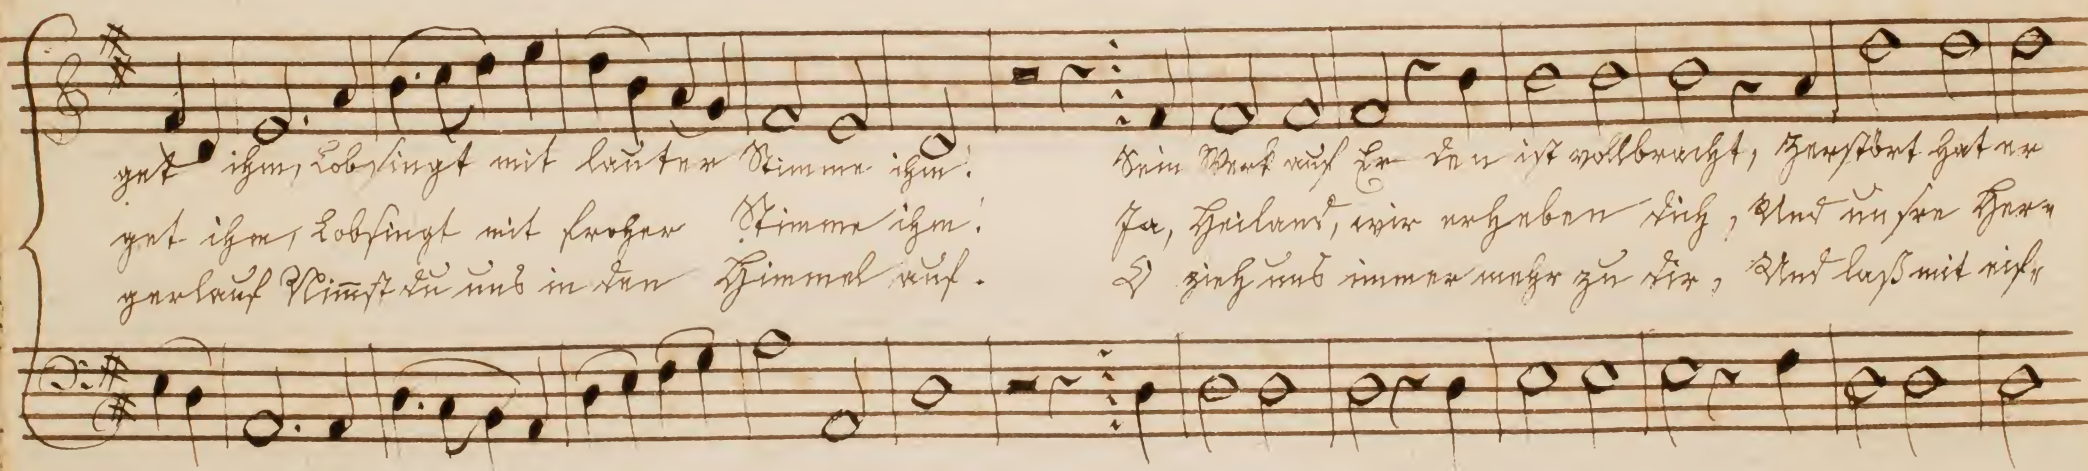 get ihm, Lobsingt mit lauter Stimme ihm! Sein Werk auf Er den ist vollbracht, Zerstört hat er
get ihm, Lobsingt mit froher Stimme ihm! Ja, Heiland, wir erheben dich, Und unsre Her-
gerlauf Nim̅st du uns in den Himmel auf. O zieh uns immer mehr zu dir, Und laß mit eif-